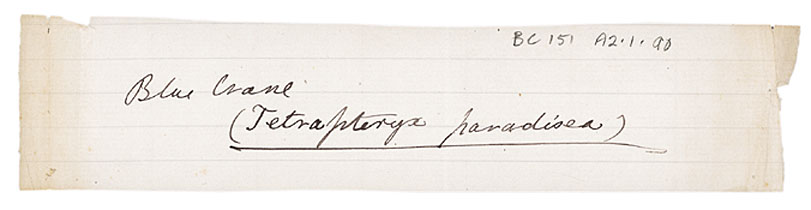 BC 151 A2.1.90
Blue Crane
(Tetrapteryx paradisea)